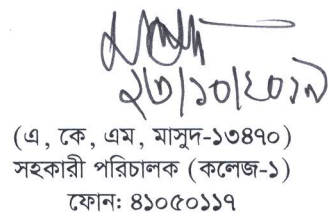 ২৩/১০/২০১৯
(এ, কে, এম, মাসুদ-১৩৪৭০)
সহকারী পরিচালক (কলেজ-১)
ফোন: ৪১০৫০১১৭